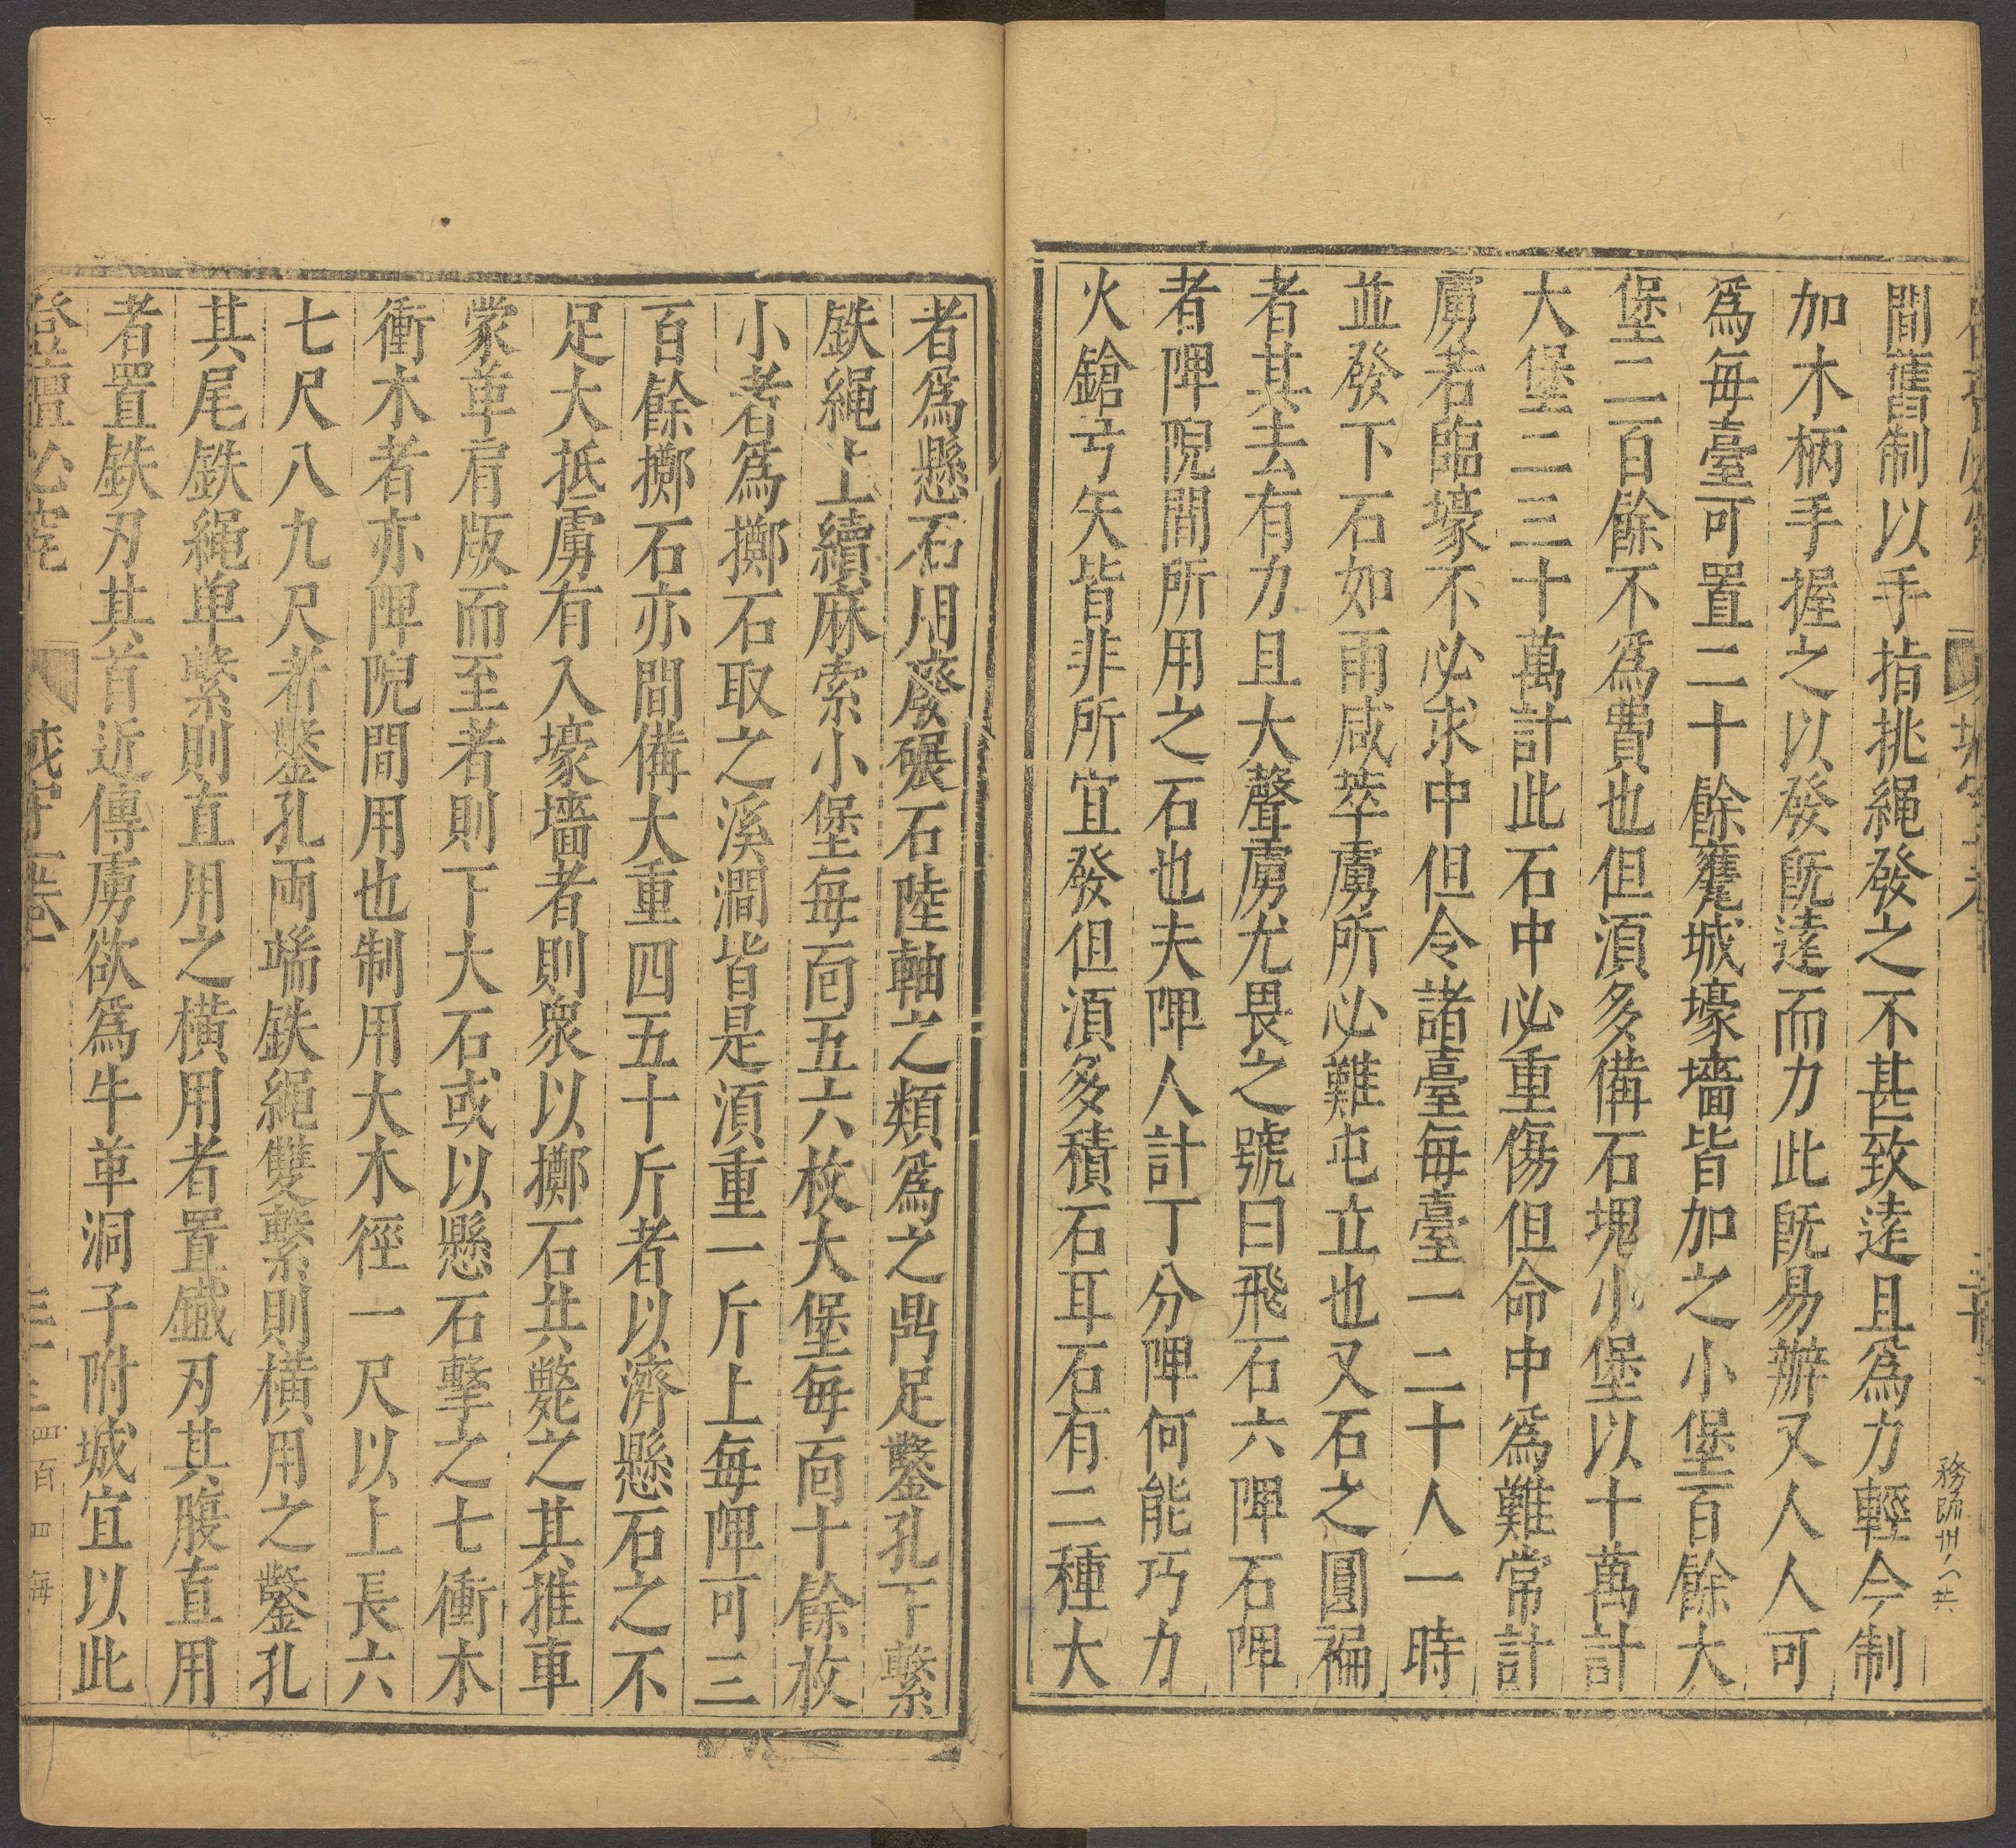 間舊制以手指挑繩發之不甚致逺且爲力輕今制
加木柄手握之以發旣逺而力此旣易辦又人人可
爲每臺可置二十餘甕城壕墻皆加之小堡百餘大
堡二百餘不爲費也但湏多備石塊小堡以十萬計
大堡二三十萬計此石中必重傷但命中爲難常計
虜若臨壕不必求中但令諸臺每臺一二十人一時
並發下石如雨咸萃虜所必難屯立也又石之圓褊
者其去有力且大聲虜尤畏之號曰飛石六陴石陴
者陴隉間所用之石也夫陴人計丁分陴何能巧力
火鎗弓矢皆非所宜發但湏多積石耳石有二種大
者爲懸石用廢碾石陸軸之類爲之鼎足鑿孔下繫
鉄繩上續麻索小堡每面五六枚大堡每面十餘枚
小者爲擲石取之溪澗皆是湏重一斤上每陴可三
百餘擲石亦間備大重四五十斤者以濟懸石之不
足大抵虜有入壕墻者則衆以擲石共斃之其推車
蒙革肩版而至者則下大石或以懸石擊之七衝木
衝木者亦陴隉間用也制用大木徑一尺以上長六
七尺八九尺者鑿孔両端鉄繩雙繫則橫用之鑿孔
其尾鉄繩単繫則直用之橫用者置鐵刃其腹直用
者置鉄刃其首近傳虜欲爲牛革洞子附城宜以此
登壇必究